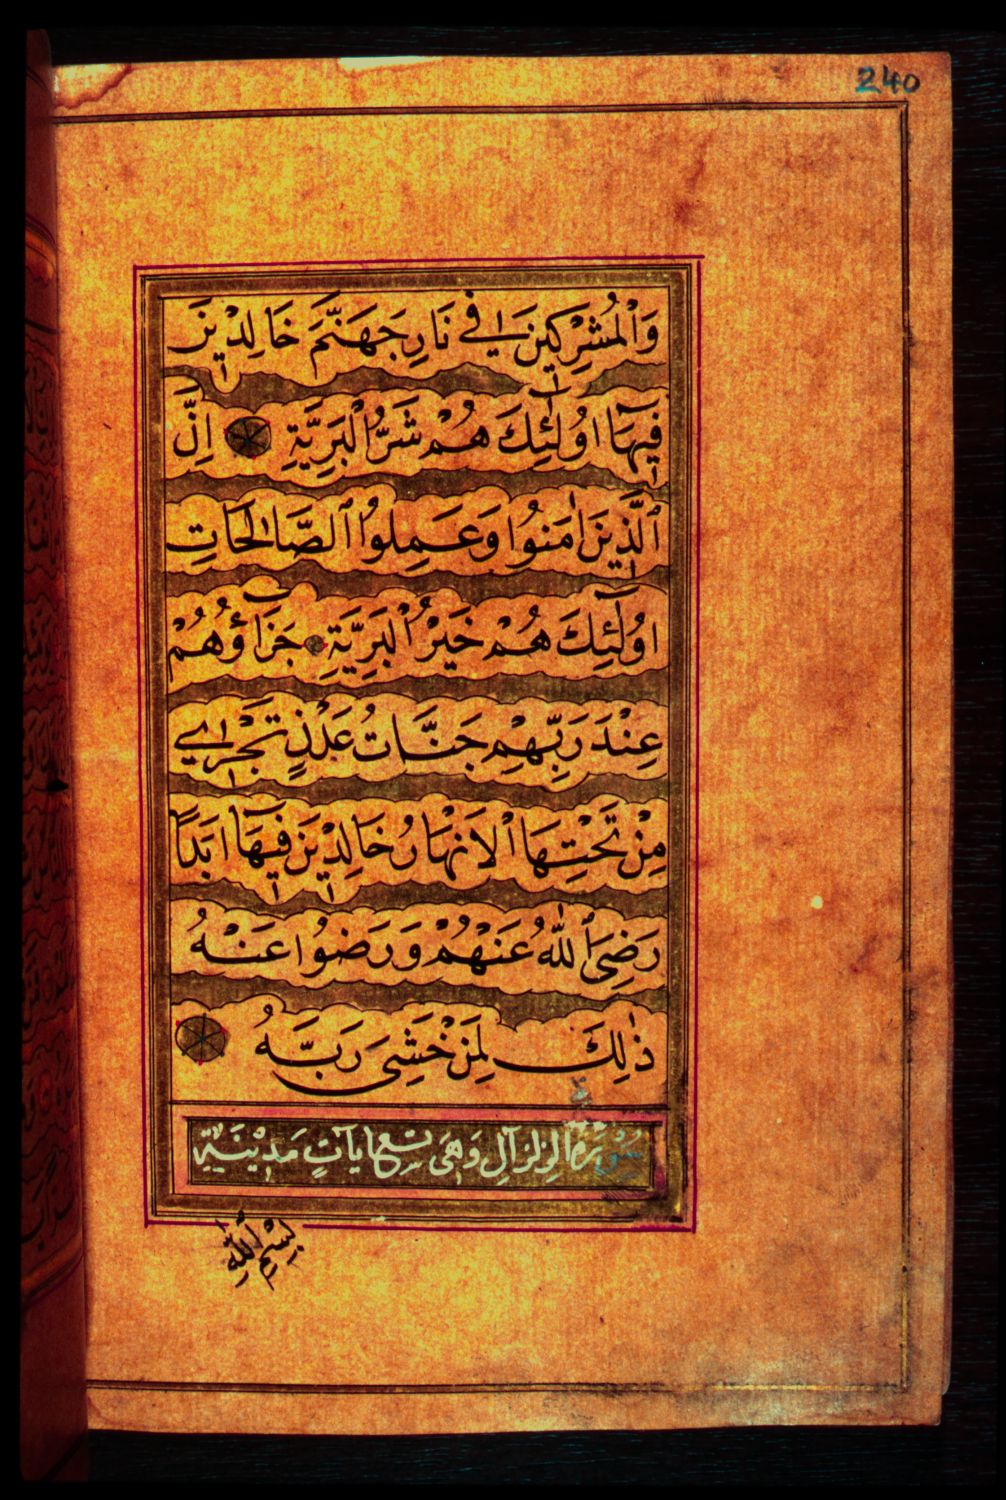 240
وَالْمُشْرِكِينَ فِي نَارِ جَهَنَّمَ خَالِدِينَ
فِيهَا اُولٰٓئِكَ هُمْ شَرُّ الْبَرِيَّةِ اِنَّ
ٱلَّذِينَ اٰمَنُوا وَعَمِلُوا ٱلصَّالِحَاتِ
اُولٰٓئِكَ هُمْ خَيْرُ الْبَرِيَّةِ جَزَآؤُهُمْ
عِنْدَ رَبِّهِمْ جَنَّاتُ عَدْنٍ تَجْرِي
مِنْ تَحْتِهَا الْاَنْهَارُ خَالِدِينَ فِيهَا اَبَدًا
رَضِيَ ٱللّٰهُ عَنْهُمْ وَرَضُوا عَنْهُ
ذٰلِكَ لِمَنْ خَشِيَ رَبَّهُ
سُورَةُ الزِلْزَالِ وَهِيَ تِسْعُ اٰيَاتٍ مَدِيْنَيَّةٌ
بِسْمِ اللّٰهِ